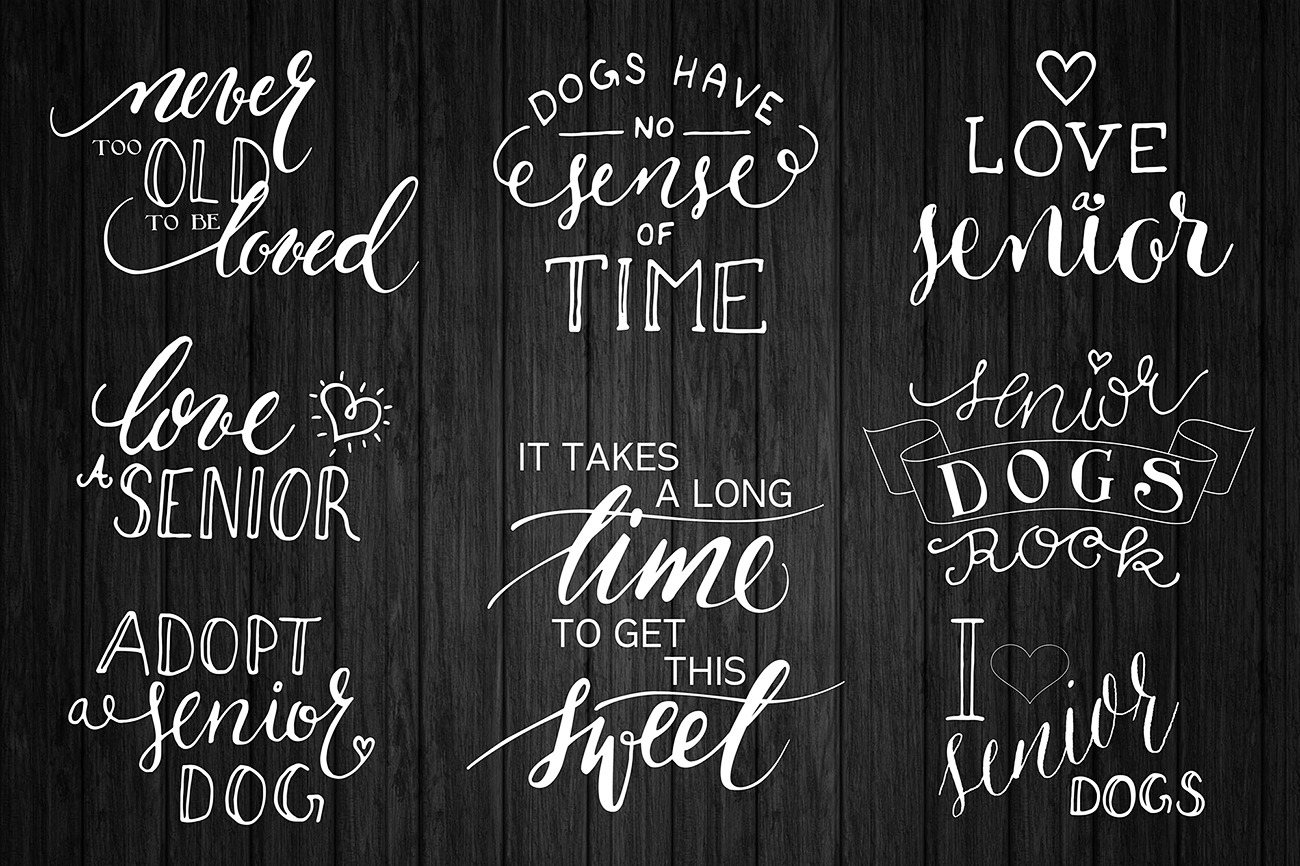 never
TOO OLD
TO BE loved
DOGS HAVE
NO
sense
OF
TIME
LOVE
a
senior
love
A SENIOR
IT TAKES
A LONG
time
TO GET
THIS
sweet
senior
DOGS
ROCK
ADOPT
a senior
DOG
I
senior
DOGS